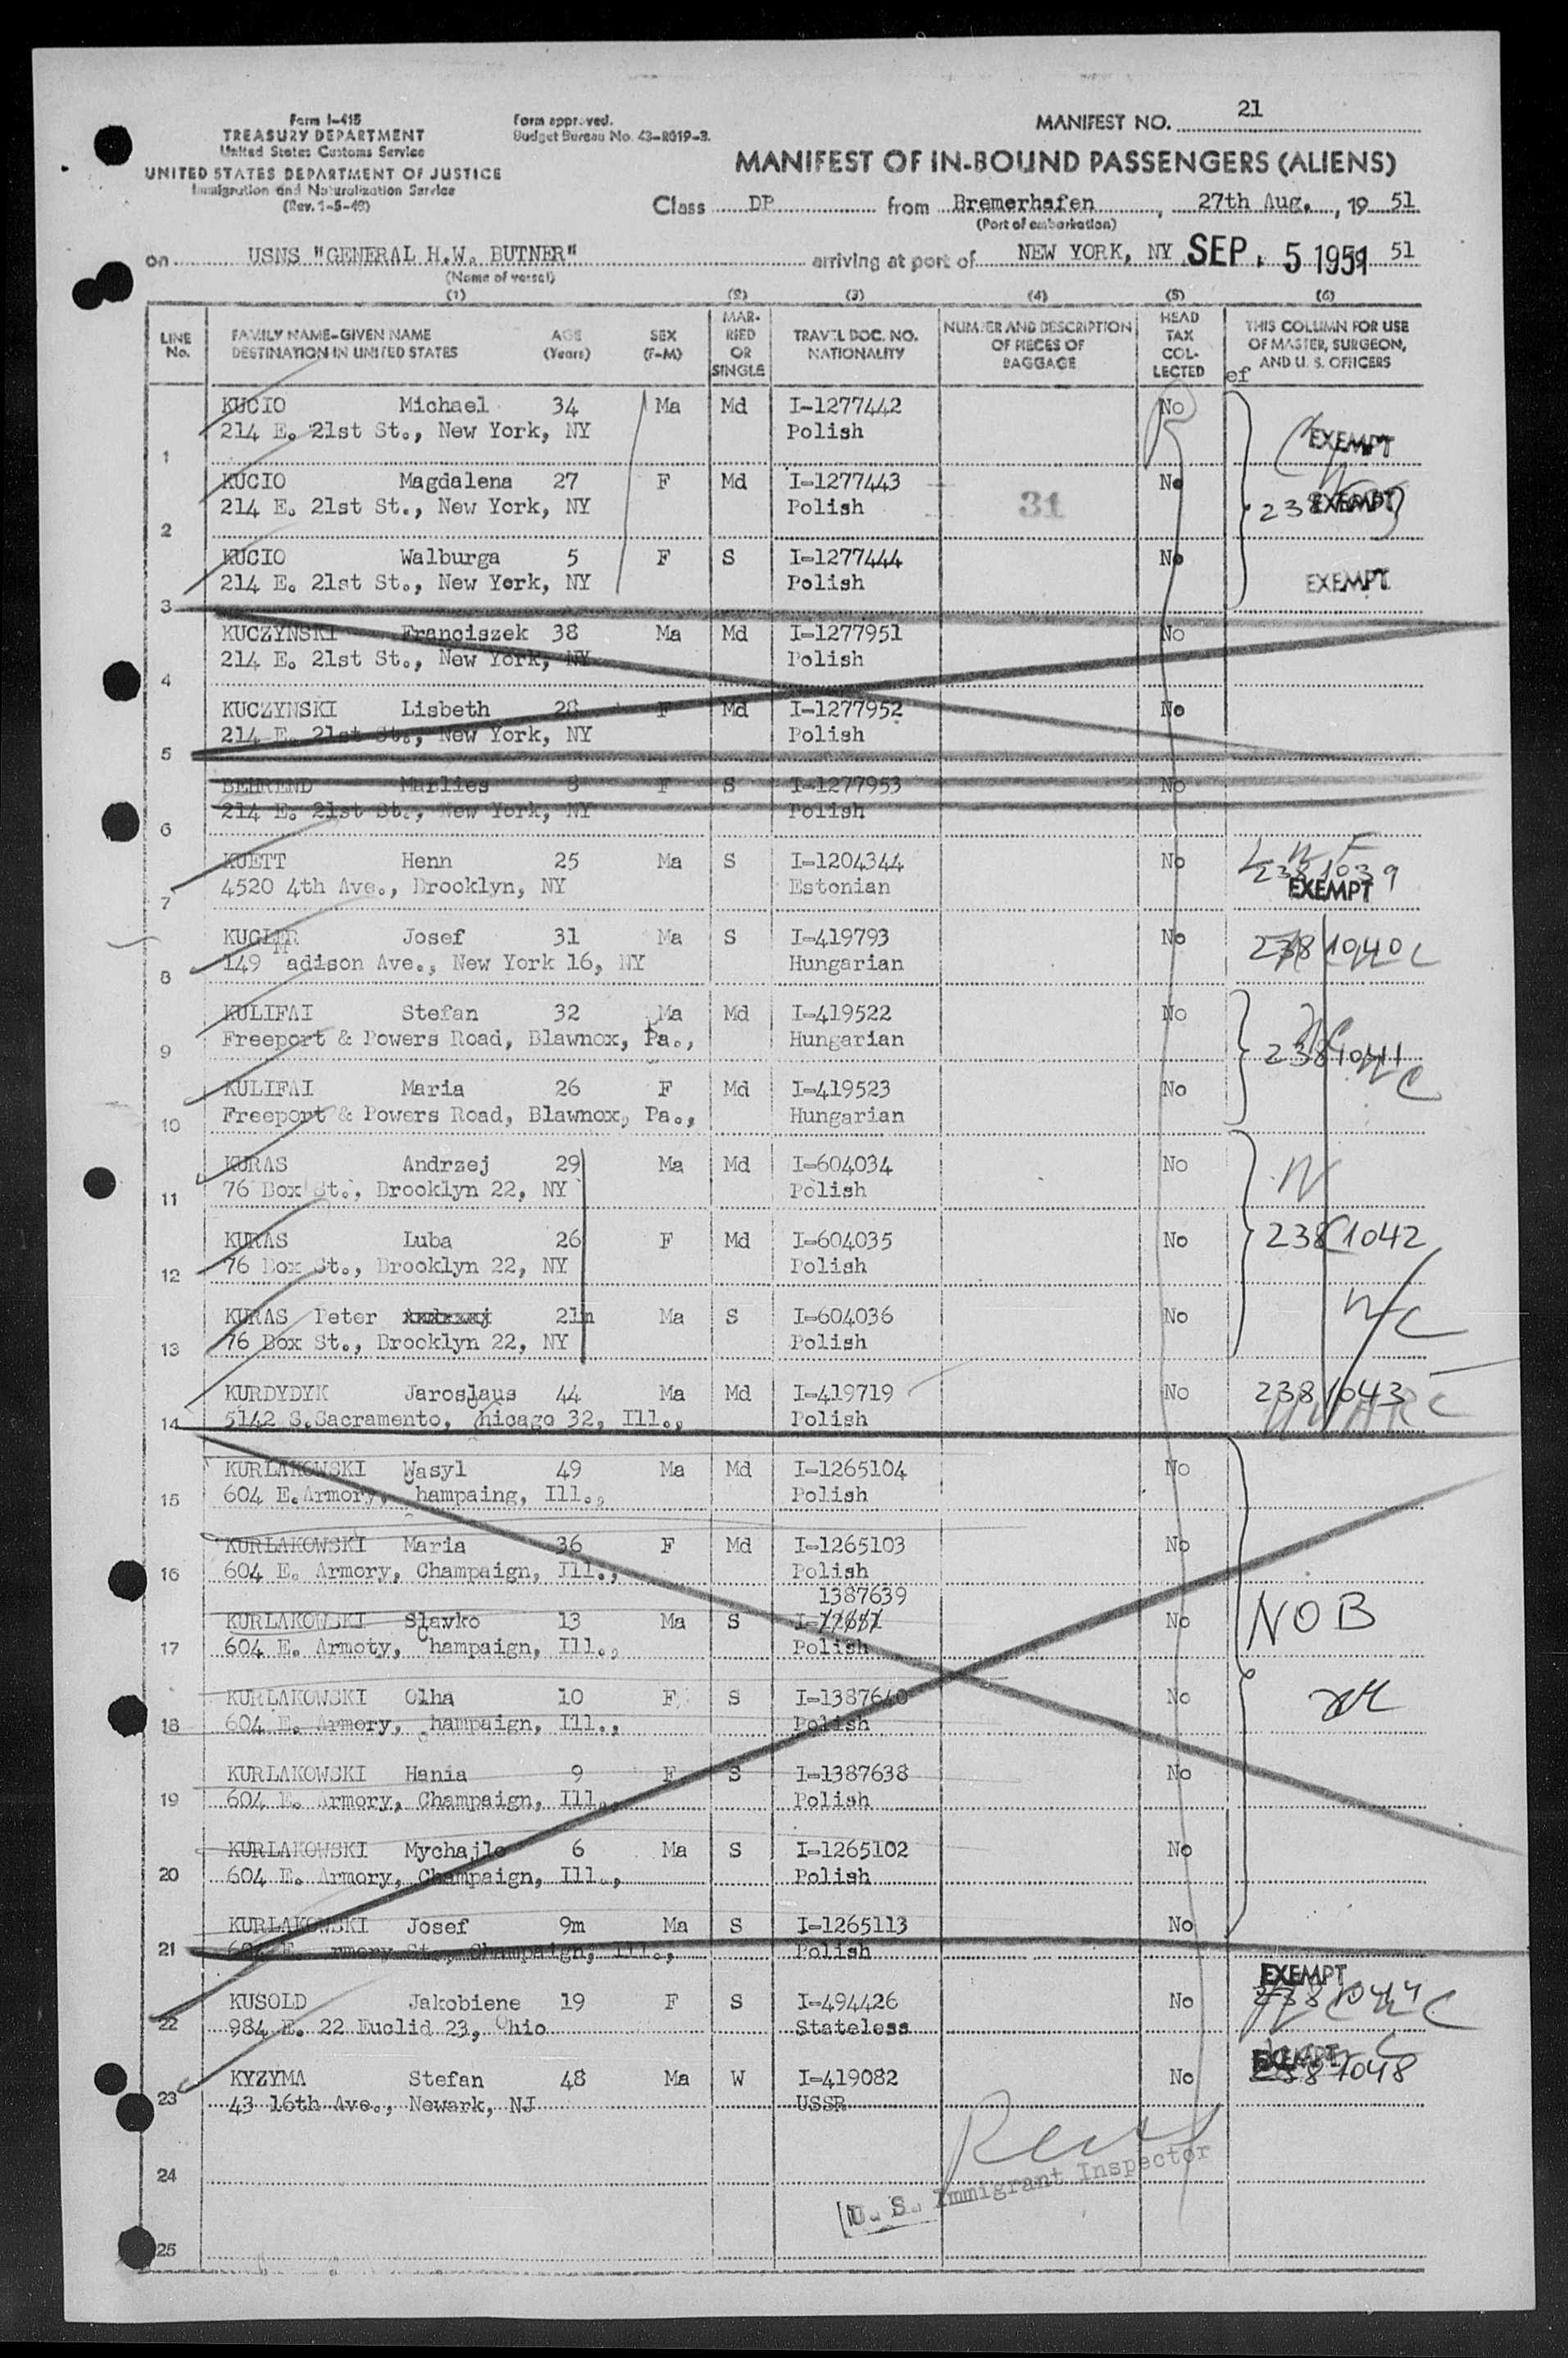 Form I-415
TREASURY DEPARTMENT
United States Customs Service
UNITED STATES DEPARTMENT OF JUSTICE
Immigration and Naturalization Service
(Rev. 1-5-49)
Form approved.
Budget Bureau No. 43-R019-3.
MANIFEST NO. 21
MANIFEST OF IN-BOUND PASSENGERS (ALIENS)
Class DP from Bremerhafen, 27th Aug., 19 51
(Port of embarkation)
on USNS "GENERAL H.W. BUTNER" arriving at port of NEW YORK, NY SEP. 5 1951 51
(Name of vessel)
(1) (2) (3) (4) (5) (6)
LINE No. FAMILY NAME-GIVEN NAME DESTINATION IN UNITED STATES AGE (Years) SEX (F-M) MARRIED OR SINGLE TRAVEL DOC. NO. NATIONALITY NUMBER AND DESCRIPTION OF PIECES OF BAGGAGE HEAD TAX COLLECTED THIS COLUMN FOR USE OF MASTER, SURGEON, AND U. S. OFFICERS
ef
KUCIO Michael 34 Ma Md I-1277442 No EXEMPT
1 214 E. 21st St., New York, NY Polish
KUCIO Magdalena 27 F Md I-1277443 31 No EXEMPT
2 214 E. 21st St., New York, NY Polish
KUCIO Walburga 5 F S I-1277444 No EXEMPT
3 214 E. 21st St., New York, NY Polish
KUCZYNSKI Franciszek 38 Ma Md I-1277951 No
4 214 E. 21st St., New York, NY Polish
KUCZYNSKI Lisbeth 28 F Md I-1277952 No
5 214 E. 21st St., New York, NY Polish
BEHREND Marlies 8 F S I-1277953 No
6 214 E. 21st St., New York, NY Polish
KUETT Henn 25 Ma S I-1204344 No 2381039
7 4520 4th Ave., Brooklyn, NY Estonian EXEMPT
KUGLER Josef 31 Ma S I-419793 No 2381040
8 149 Madison Ave., New York 16, NY Hungarian
KULIFAI Stefan 32 Ma Md I-419522 No
9 Freeport & Powers Road, Blawnox, Pa., Hungarian 2381041
KULIFAI Maria 26 F Md I-419523 No
10 Freeport & Powers Road, Blawnox, Pa., Hungarian
KURAS Andrzej 29 Ma Md I-604034 No
11 76 Box St., Brooklyn 22, NY Polish
KURAS Luba 26 F Md I-604035 No 2381042
12 76 Box St., Brooklyn 22, NY Polish
KURAS Peter Andrzej 21m Ma S I-604036 No
13 76 Box St., Brooklyn 22, NY Polish
KURDYDYK Jaroslaus 44 Ma Md I-419719 No 2381043
14 5142 S.Sacramento, Chicago 32, Ill., Polish
KURLAKOWSKI Wasyl 49 Ma Md I-1265104 No
15 604 E.Armory, Champaing, Ill., Polish
KURLAKOWSKI Maria 36 F Md I-1265103 No
16 604 E. Armory, Champaign, Ill., Polish
1387639
KURLAKOWSKI Slavko 13 Ma S I- No NOB
17 604 E. Armoty, Champaign, Ill., Polish
KURLAKOWSKI Olha 10 F S I-1387640 No
18 604 E. Armory, Champaign, Ill., Polish
KURLAKOWSKI Hania 9 F S I-1387638 No
19 604 E. Armory, Champaign, Ill., Polish
KURLAKOWSKI Mychajlo 6 Ma S I-1265102 No
20 604 E. Armory, Champaign, Ill., Polish
KURLAKOWSKI Josef 9m Ma S I-1265113 No
21 604 E. Armory St., Champaign, Ill., Polish
EXEMPT
KUSOLD Jakobiene 19 F S I-494426 No 2381044
22 984 E. 22 Euclid 23, Ohio Stateless
EXEMPT
KYZYMA Stefan 48 Ma W I-419082 No 2381048
23 43 16th Ave., Newark, NJ USSR
24
U. S. Immigrant Inspector
25